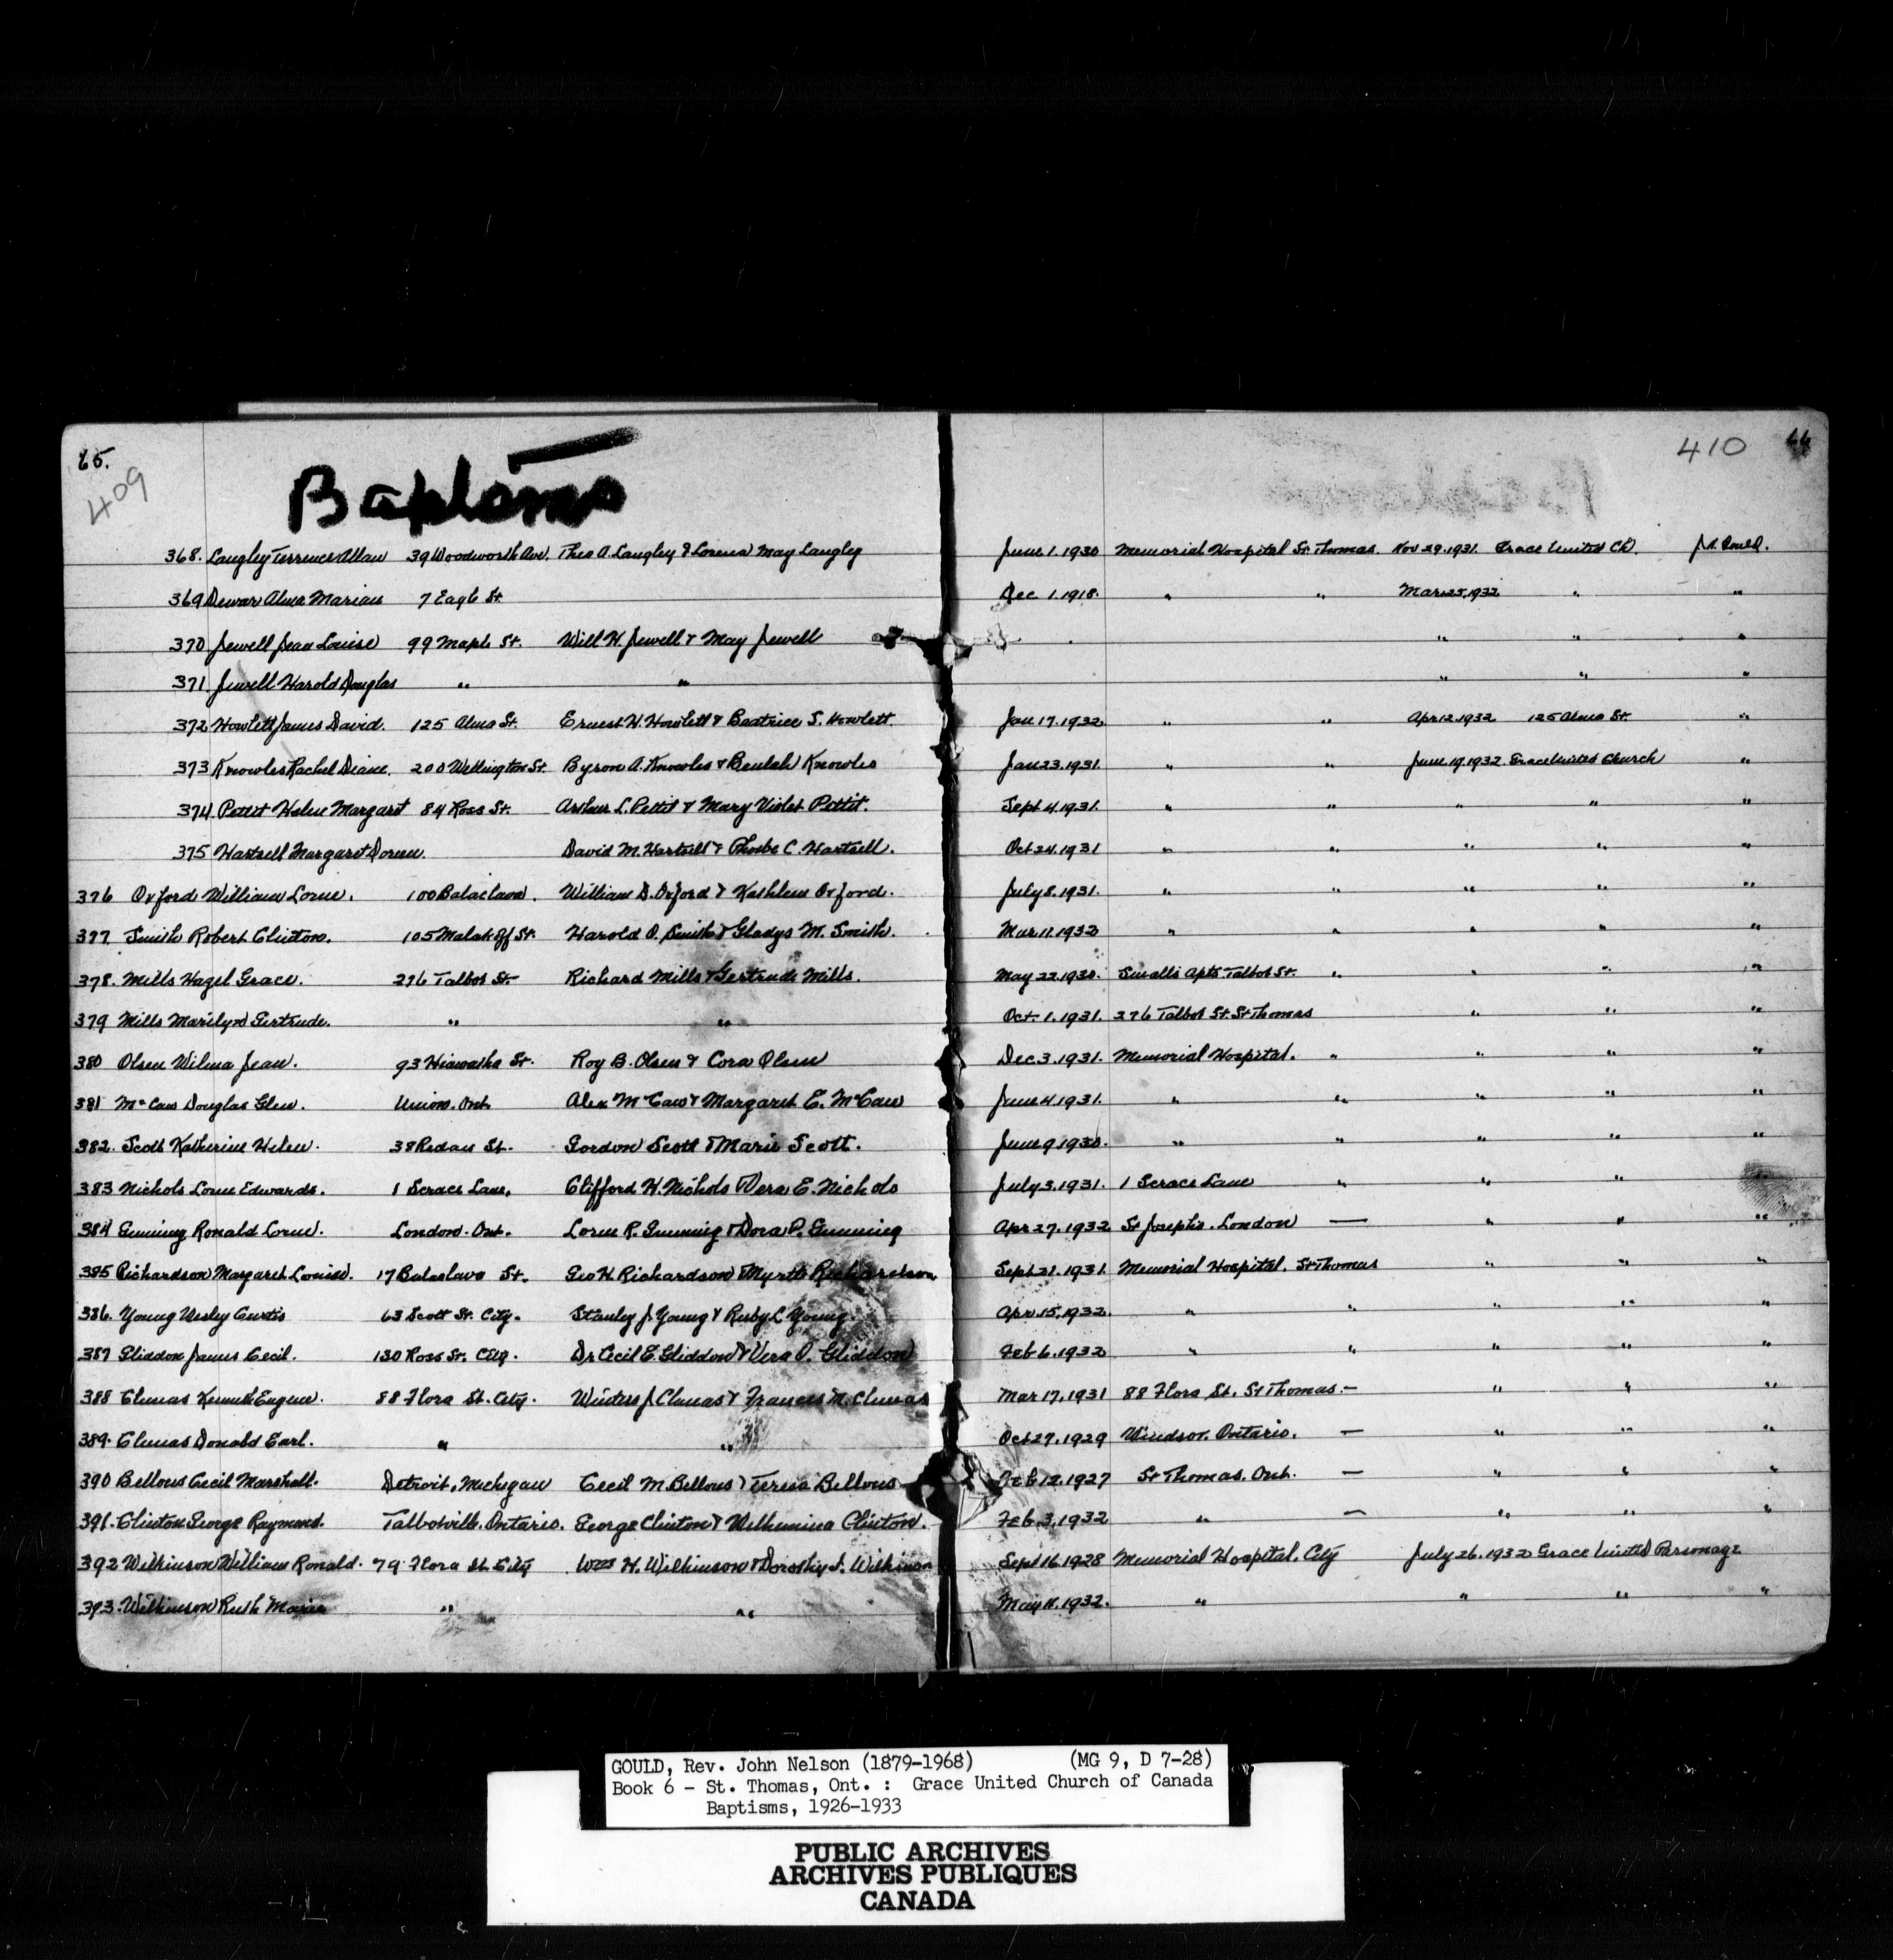 65.
409
Baptisms
410 66
368. Langley Terrence Allan 39 Woodworth Ave. Theo A. Langley & Lorena May Langley June 1. 1930 Memorial Hospital St Thomas. Nov 29. 1931. Grace United Ch. J.N. Gould.
369 Dewar Alma Marian 7 Eagle St Dec 1. 1918. " " Mar 25, 1932 " "
370 Jewell Jean Louise 99 Maple St. Will H. Jewell & May Jewell " " "
371 Jewell Harold Douglas " " " " "
372 Howlett James David. 125 Alma St. Ernest H. Howlett & Beatrice S. Howlett. Jan 17. 1932 " " Apr 12. 1932 125 Alma St. "
373 Knowles Rachel Diane. 200 Wellington St. Byron A. Knowles & Beulah Knowles Jan 23. 1931. " " June 19. 1932. Grace United Church "
374. Pettit Helen Margaret 84 Ross St. Arthur L. Pettit & Mary Violet Pettit. Sept 4. 1931. " " " " "
375 Hartsell Margaret Doreen. David M. Hartsell & Phoebe C. Hartsell. Oct 24. 1931 " " " " "
376 Oxford William Lorne. 100 Balaclava. William D. Oxford & Kathleen Oxford. July 8. 1931. " " " " "
377. Smith Robert Clinton. 105 Malakoff St. Harold O. Smith & Gladys M. Smith. Mar. 11. 1932 " " " " "
378. Mills Hazel Grace. 276 Talbot St- Richard Mills & Gertrude Mills. May 22. 1930. Smalls Apts. Talbot St. " " " "
379 Mills Marilyn Gertrude. " " Oct. 1. 1931. 276 Talbot St. St Thomas " " "
380 Olsen Wilma Jean. 93 Hiawatha St. Roy B. Olsen & Cora Olsen Dec. 3. 1931. Memorial Hospital. " " " "
381 McCaw Douglas Glen. Union. Ont. Alex McCaw & Margaret E. McCaw June 4. 1931. " " " " "
382. Scott Katherine Helen. 38 Redan St. Gordon Scott & Marie Scott. June 9. 1930. " " " " "
383 Nichols Lorne Edwards. 1 Scrace Lane. Clifford H. Nichols & Vera E. Nichols July 3. 1931. 1 Scrace Lane " " "
384 Gunning Ronald Lorne. London. Ont. Lorne R. Gunning & Dora P. Gunning Apr 27. 1932 St Joseph's. London — " " "
385 Richardson Margaret Louise. 17 Balaclava St. Geo H. Richardson & Myrtle Richardson Sept 21. 1931. Memorial Hospital. St Thomas " " "
386. Young Wesley Curtis 63 Scott St. City. Stanley J. Young & Ruby L. Young. Apr. 15, 1932. " " " " "
387 Gliddon James Cecil. 130 Ross St. City. Dr Cecil E. Gliddon & Vera O. Gliddon Feb 6. 1932 " " " " "
388 Clunas Kenneth Eugene. 88 Flora St. City. Winters J. Clunas & Frances M. Clunas Mar 17, 1931 88 Flora St. St Thomas.— " " "
389. Clunas Donald Earl. " " Oct 27. 1929 Windsor. Ontario. — " " "
390 Bellows Cecil Marshall. Detroit, Michigan Cecil M. Bellows & Teresa Bellows Feb 12. 1927 St Thomas. Ont. — " " "
391. Clinton George Raymond. Talbotville. Ontario. George Clinton & Wilhemina Clinton. Feb. 3. 1932 " — " " "
392 Wilkinson William Ronald. 79 Flora St. City Wm H. Wilkinson & Dorothy J. Wilkinson Sept 16. 1928 Memorial Hospital. City July 26. 1932 Grace United Parsonage
393. Wilkinson Ruth Marie " " May 11. 1932. " " " "
GOULD, Rev. John Nelson (1879-1968) (MG 9, D 7-28)
Book 6 - St. Thomas, Ont. : Grace United Church of Canada
Baptisms, 1926-1933
PUBLIC ARCHIVES
ARCHIVES PUBLIQUES
CANADA